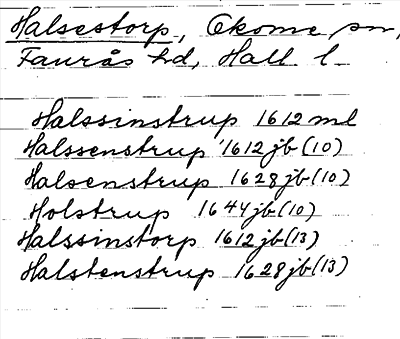 Halsestorp, Okome sn,
Faurås hd, Hall l
Halssinstrup 1612 ml
Halssenstrup 1612 jb (10)
Halsenstrup 1628 jb (10)
Holstrup 1644 jb (10)
Halssinstorp 1612 jb (13)
Halstenstrup 1628 jb (13)